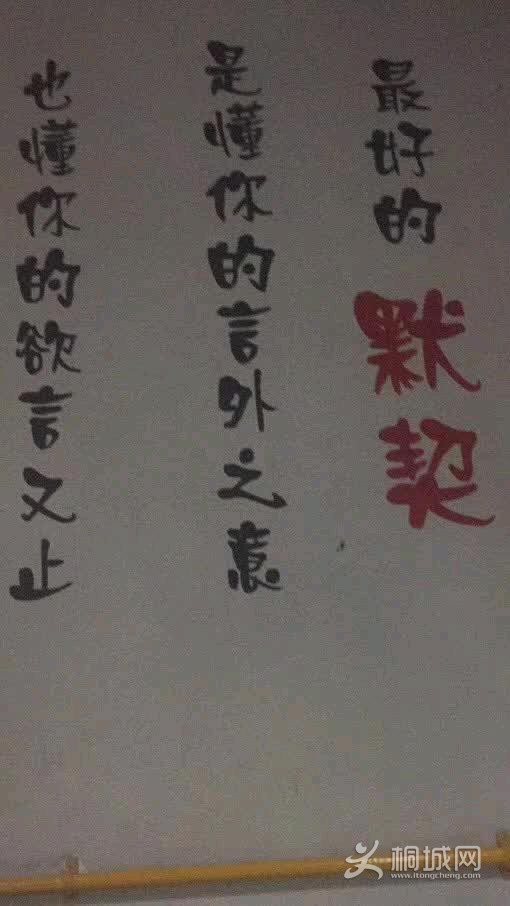 最好的默契
是懂你的言外之意
也懂你的欲言又止
桐城网
www.itongcheng.com